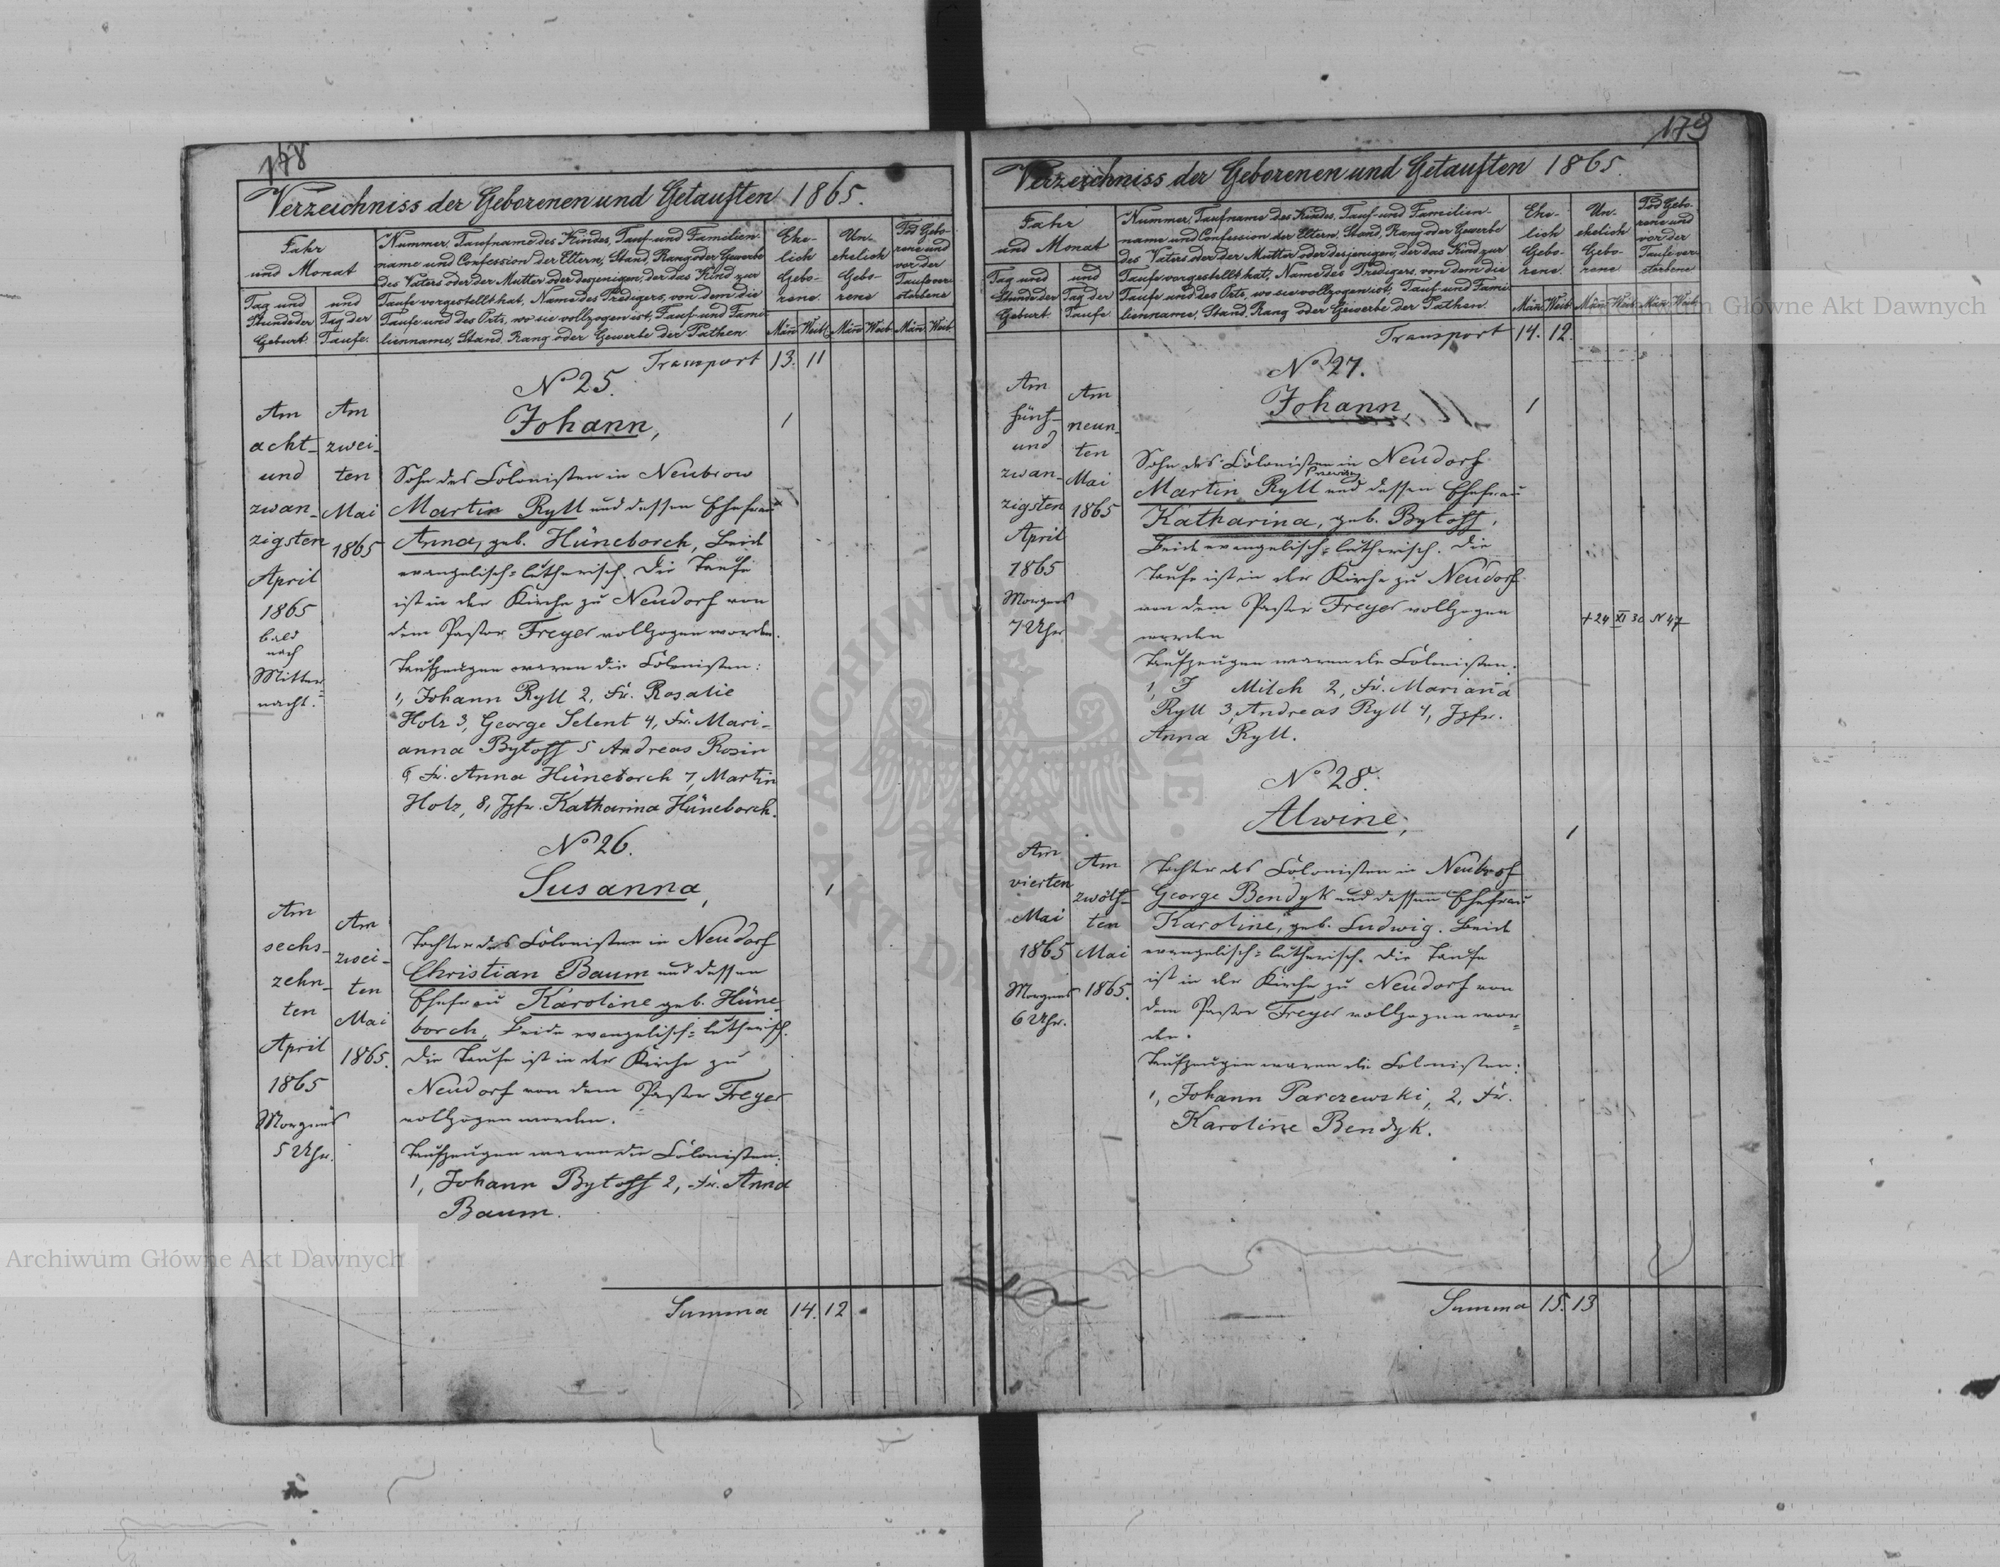 178
Verzeichniss der Geborenen und Getauften 1865.
Jahr
und Monat
Tag und
Stunde der
Geburt.
und
Tag der
Taufe.
Nummer, Taufname des Kindes, Tauf- und Familien-
name und Confession der Eltern, Stand, Rang oder Gewerbe
des Vaters oder der Mutter oder desjenigen, der das Kind zur
Taufe vorgestellt hat, Name des Predigers, von dem die
Taufe und des Orts, wo sie vollzogen ist, Tauf- und Fami-
lienname, Stand, Rang oder Gewerbe der Pathen.
Ehe-
lich
Gebo-
rene.
Un-
ehelich
Gebo-
rene
Tod Gebo-
rene und
vor der
Taufe ver-
storbene
Män̄ Weib. Män̄ Weib Män̄ Weib.
Transport 13. 11
No 25.
Johann,
1
Am
acht-
und
zwan-
zigsten
April
1865
bald
nach
Mitter-
nacht.
Am
zwei-
ten
Mai
1865
Sohn des Colonisten in Neubrow
Martin Ryll und dessen Ehefrau
Anna, geb. Hüneborch, Beide
evangelisch-lutherisch. Die Taufe
ist in der Kirche zu Neudorf von
dem Pastor Freyer vollzogen worden.
Taufzeugen waren die Colonisten:
1, Johann Ryll 2, Fr. Rosalie
Holz 3, George Selent 4, Fr. Mari-
anna Bytoff 5 Andreas Rosin
6 Fr. Anna Hüneborch 7, Martin
Holz, 8, Jgfr. Katharina Hüneborch.
No 26.
Susanna,
1
Am
sechs-
zehn-
ten
April
1865
Morgens
5 Uhr.
Am
zwei-
ten
Mai
1865.
Tochter des Colonisten in Neudorf
Christian Baum und dessen
Ehefrau Karoline geb. Hüne-
borch, Beide evangelisch-lutherisch.
Die Taufe ist in der Kirche zu
Neudorf von dem Pastor Freyer
vollzogen worden.
Taufzeugen waren die Colonisten:
1, Johann Bytoff 2, Fr. Anna
Baum.
Summa 14. 12
179
Verzeichniss der Geborenen und Getauften 1865.
Jahr
und Monat
Tag und
Stunde der
Geburt.
und
Tag der
Taufe
Nummer, Taufname des Kindes, Tauf- und Familien-
name und Confession der Eltern, Stand, Rang oder Gewerbe
des Vaters oder der Mutter oder desjenigen, der das Kind zur
Taufe vorgestellt hat, Name des Predigers, von dem die
Taufe und des Orts, wo sie vollzogen ist, Tauf- und Fami-
lienname, Stand, Rang oder Gewerbe der Pathen.
Ehe-
lich
Gebo-
rene.
Un-
ehelich
Gebo-
rene
Tod Gebo-
rene und
vor der
Taufe ver-
storbene
Män̄ Weib. Män̄ Weib. Män̄ Weib.
Transport 14. 12.
No 27.
Johann,
1
Am
fünf-
und
zwan-
zigsten
April
1865
Morgens
7 Uhr
Am
neun-
ten
Mai
1865
Sohn des Colonisten in Neudorf
Martin Ryll und dessen Ehefrau
Katharina, geb. Bytoff,
Beide evangelisch-lutherisch. Die
Taufe ist in der Kirche zu Neudorf
von dem Pastor Freyer vollzogen
worden
+ 24 XI 30 N 47
Taufzeugen waren die Colonisten:
1, J Milch 2, Fr. Marian̄a
Ryll 3, Andreas Ryll 4, Jgfr.
Anna Ryll.
No 28.
Alwine,
1
Am
vierten
Mai
1865
Morgens
6 Uhr.
Am
zwölf-
ten
Mai
1865.
Tochter des Colonisten in Neubrof
George Bendyk und dessen Ehefrau
Karoline, geb. Ludwig. Beide
evangelisch-lutherisch. Die Taufe
ist in der Kirche zu Neudorf von
dem Pastor Freyer vollzogen wor-
den.
Taufzeugen waren die Colonisten:
1, Johann Parczewski, 2, Fr.
Karoline Bendyk.
Summa 15. 13
Archiwum Główne Akt Dawnych
Archiwum Główne Akt Dawnych